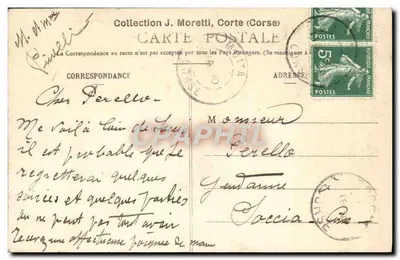 Collection J. Moretti, Corte (Corse)
CARTE POSTALE
La Correspondance au recto n'est pas acceptée par tous les Pays Étrangers. (Se renseigner à
CORRESPONDANCE
ADRESSE
POSTES
5c
POSTES
Cher Perello
Me voilà loin de
il est probable que je
regretterai quelques
soirées et quelques parties
on ne peut pas tout avoir
affectueuse poignée de main
Monsieur
Perello
Gendarme
Soccia
Corse